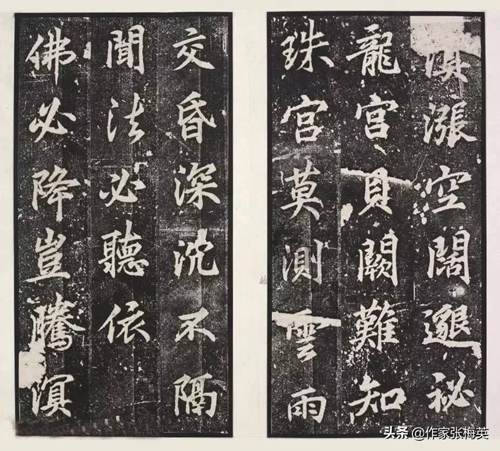 漲空闊邈祕
龍宮貝闕難知
珠宮莫測雲雨
交昏深沈不隔
聞法必聽依
佛必降豈騰溟
头条 @作家张梅英